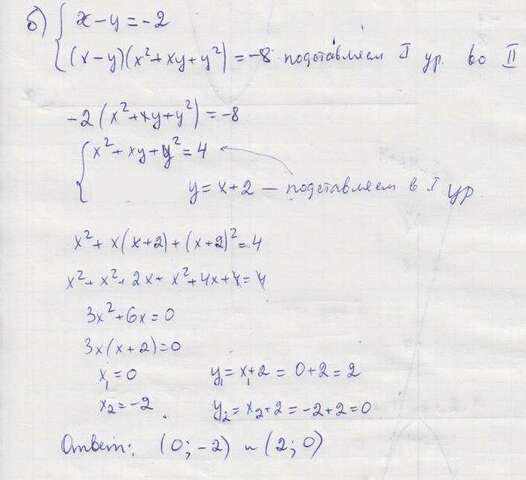 б) { x - y = -2
(x-y)(x²+xy+y²) = -8 подставляем I ур. во II
-2(x²+xy+y²) = -8
{ x²+xy+y² = 4
y = x+2 — подставляем в I ур
x² + x(x+2) + (x+2)² = 4
x² + x² + 2x + x² + 4x + 4 = 4
3x² + 6x = 0
3x(x+2) = 0
x₁ = 0 y₁ = x₁+2 = 0+2 = 2
x₂ = -2. y₂ = x₂+2 = -2+2 = 0
Ответ: (0; -2) и (2; 0)